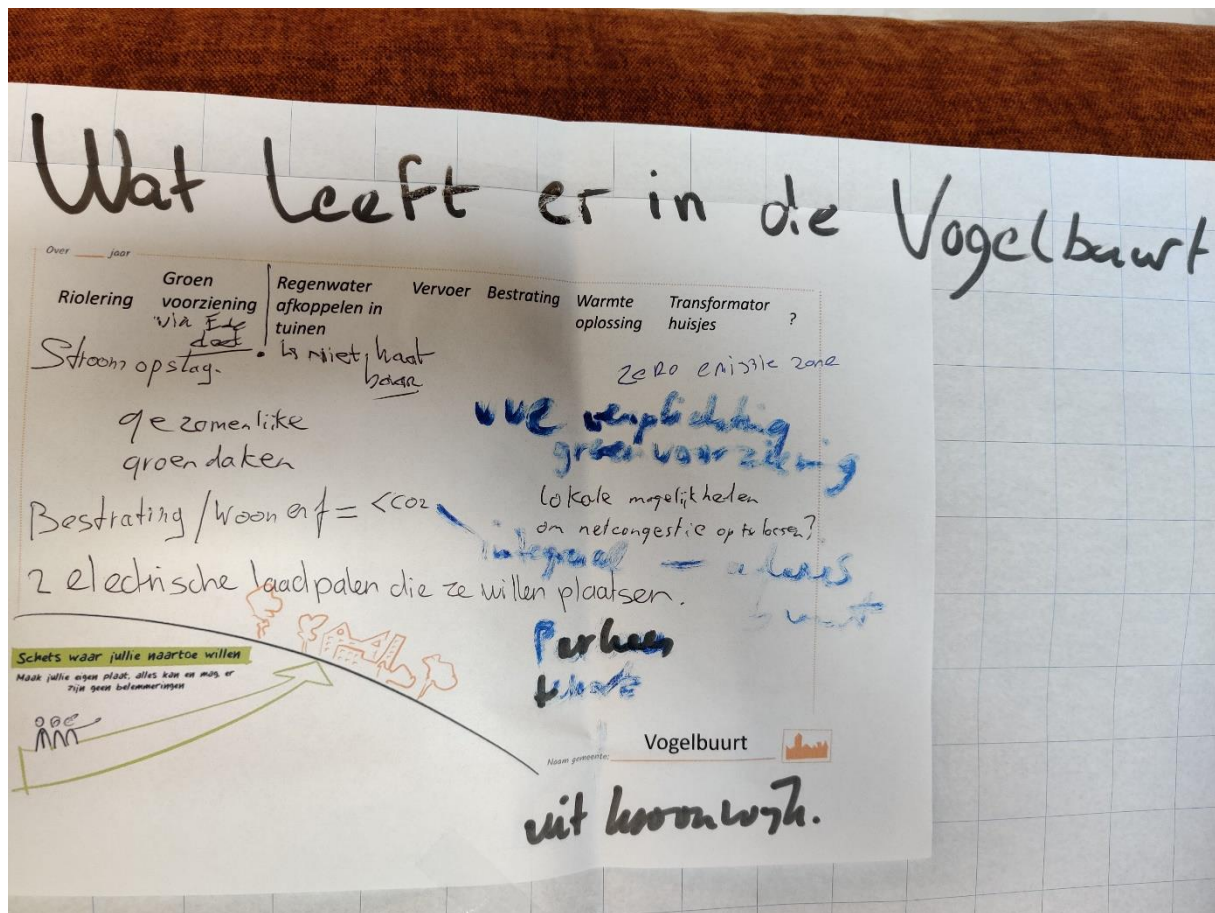 Wat leeft er in die Vogelbuurt
Over ___ jaar
Riolering
Groen
voorziening
via Ede
doet
Regenwater
afkoppelen in
tuinen
Vervoer
Bestrating
Warmte
oplossing
Transformator
huisjes
?
Stroom opslag.
is niet haal
baar
zero emissie zone
gezamenlijke
groen daken
vve verplichting
groenvoorziening
Bestrating / Woonerf = <CO2
lokale mogelijkheden
om netcongestie op te lossen?
integraal —
buurt
2 electrische laadpalen die ze willen plaatsen.
Schets waar jullie naartoe willen
Maak jullie eigen plaat, alles kan en mag, er
zijn geen belemmeringen
Naam gemeente:
Vogelbuurt
uit woonwijk.